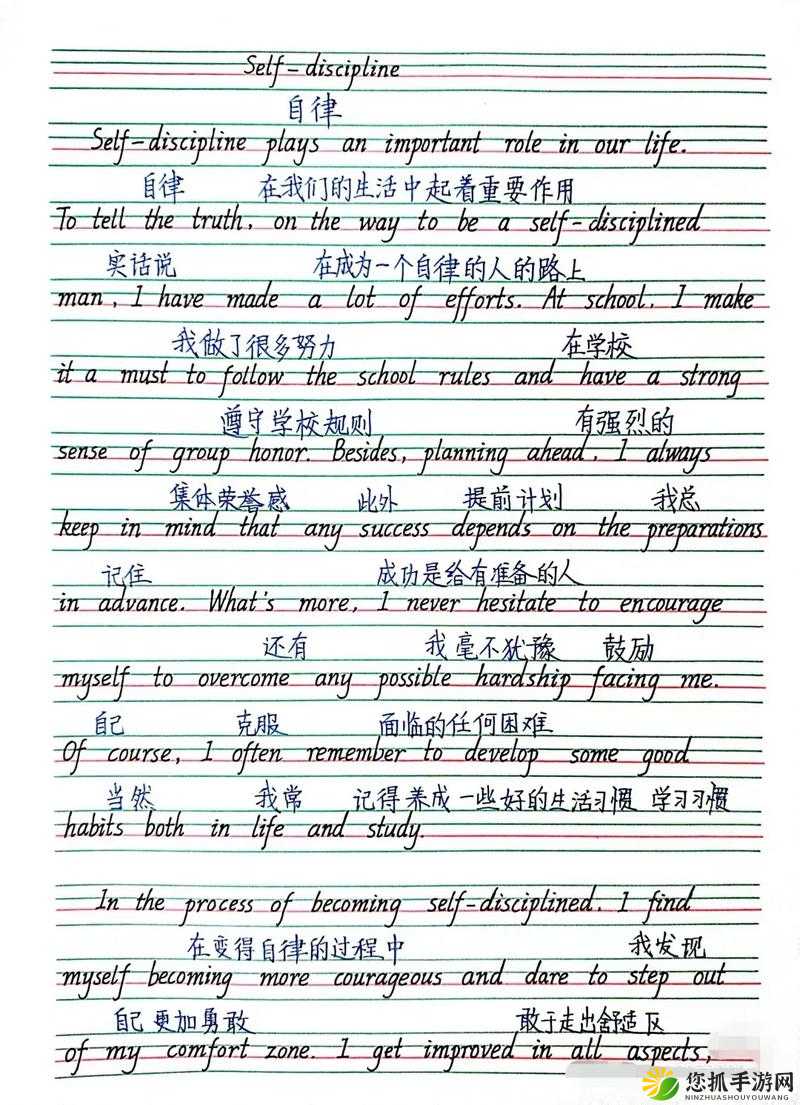 Self-discipline
自律
Self-discipline plays an important role in our life.
自律 在我们的生活中起着重要作用
To tell the truth, on the way to be a self-disciplined
实话说 在成为一个自律的人的路上
man, I have made a lot of efforts. At school, I make
我做了很多努力 在学校
it a must to follow the school rules and have a strong
遵守学校规则 有强烈的
sense of group honor. Besides, planning ahead, I always
集体荣誉感 此外 提前计划 我总
keep in mind that any success depends on the preparations
记住 成功是给有准备的人
in advance. What's more, I never hesitate to encourage
还有 我毫不犹豫 鼓励
myself to overcome any possible hardship facing me.
自己 克服 面临的任何困难
Of course, I often remember to develop some good
当然 我常 记得养成一些好的生活习惯 学习习惯
habits both in life and study.
In the process of becoming self-disciplined, I find
在变得自律的过程中 我发现
myself becoming more courageous and dare to step out
自己更加勇敢 敢于走出舒适区
of my comfort zone. I get improved in all aspects,
您抓手游网
NINZHUASHOUYOUWANG